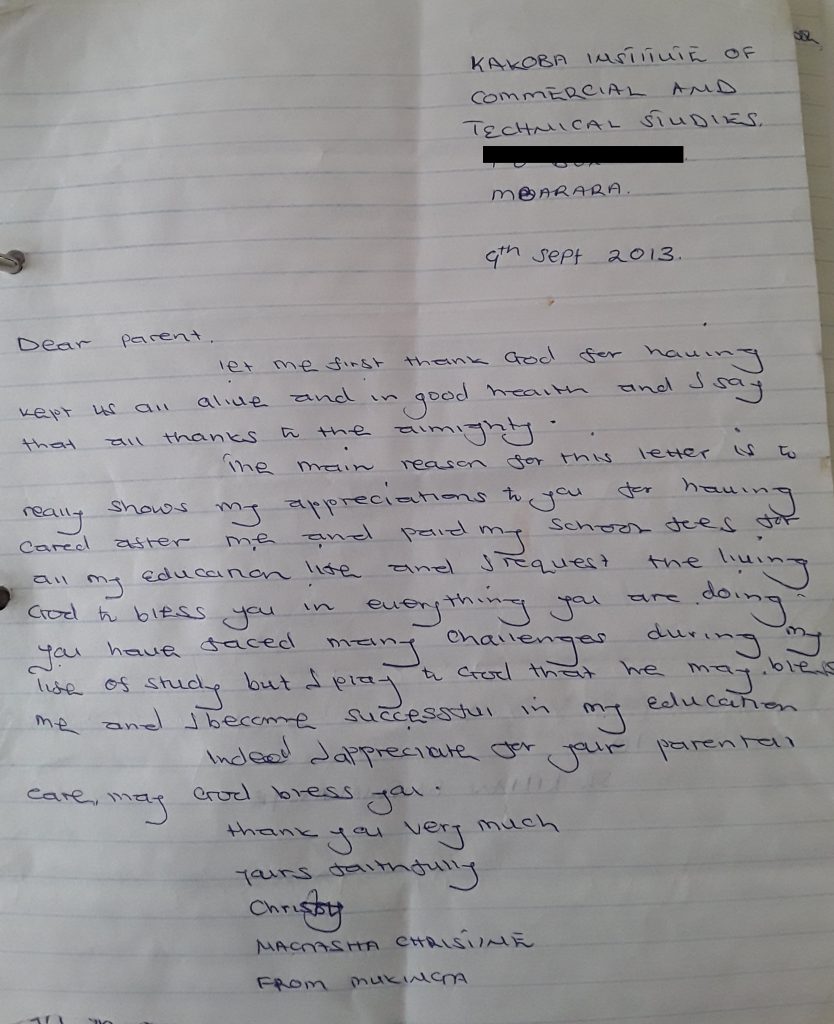 KAKOBA INSTITUTE OF
COMMERCIAL AND
TECHNICAL STUDIES.
MBARARA.
9th Sept 2013.
Dear parent.
let me first thank God for having
kept us all alive and in good health and I say
that all thanks to the almighty.
The main reason for this letter is to
really shows my appreciations to you for having
cared after me and paid my school fees for
all my education life and I request the living
God to bless you in everything you are doing.
you have faced many challenges during my
life of study but I play to God that he may bless
me and I become successful in my education
Indeed I appreciate for your parental
care, may God bless you.
thank you very much
yours faithfully
Christy
MAGASHA CHRISTINE
FROM MUKINGA